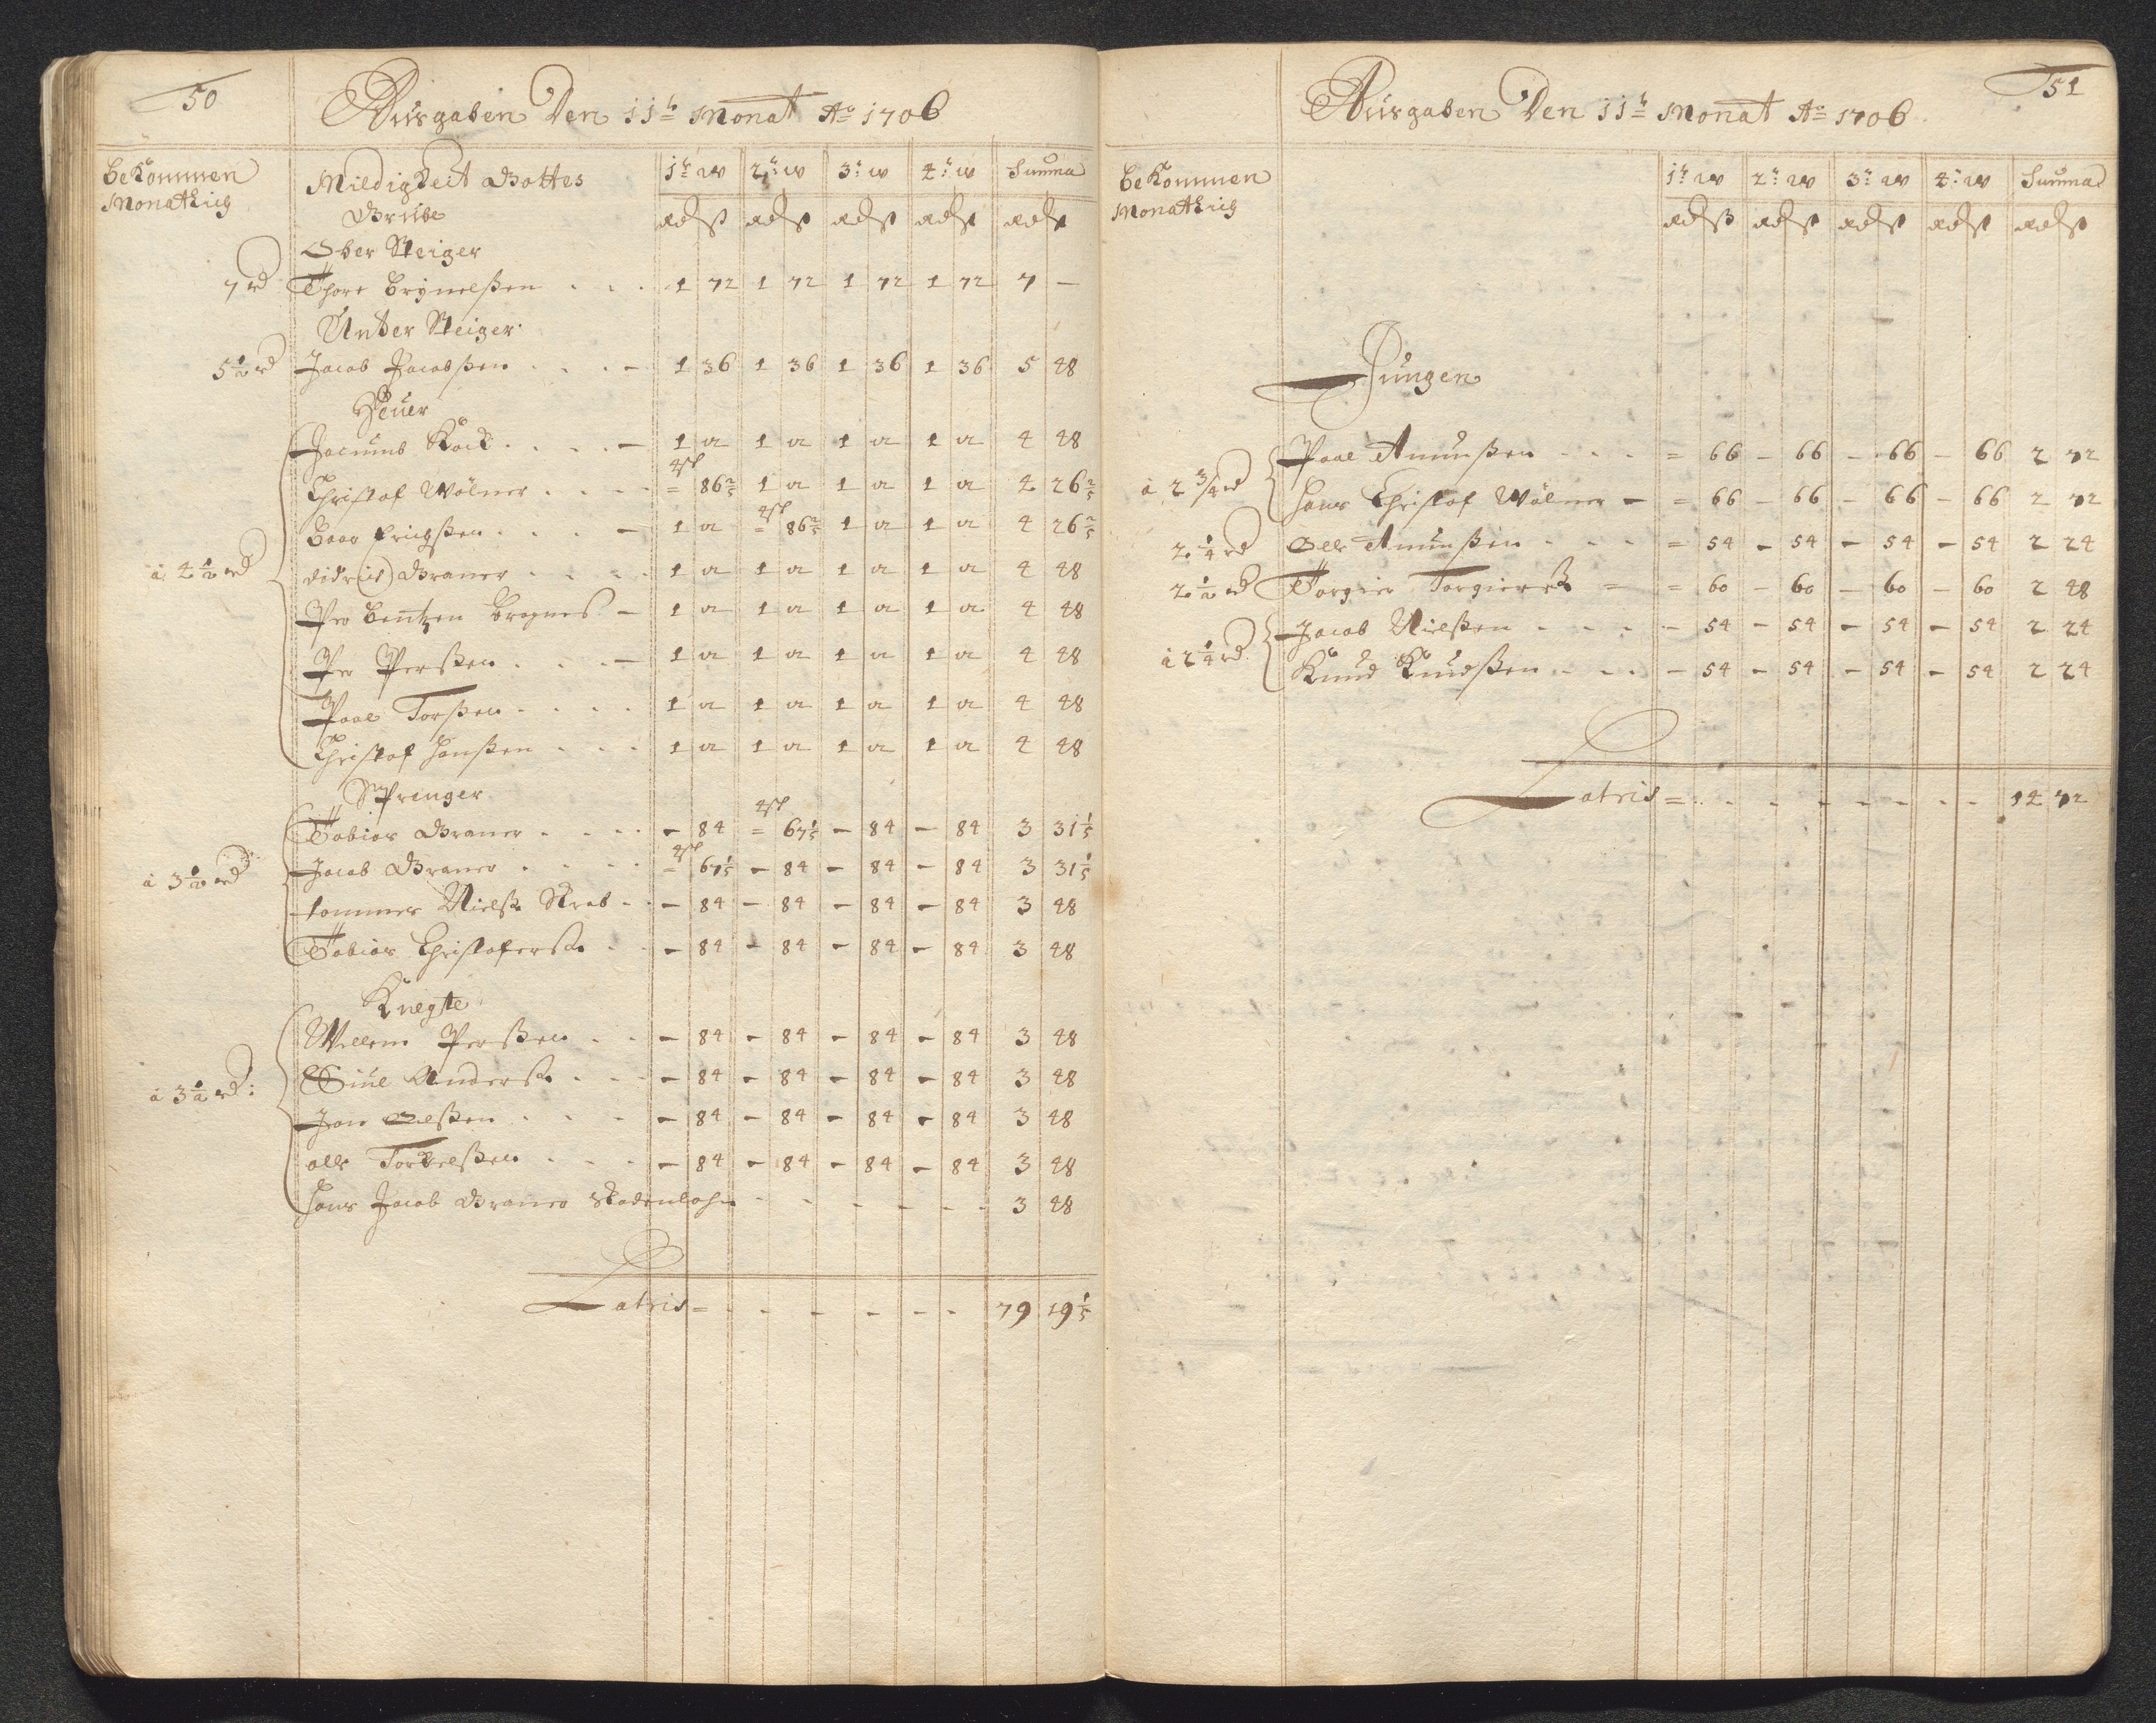 50
Ausgaben Den 11t Monat Ao 1706
bekommen Monathlig
Mildigkeit Gottes Grube
1te w 2te w 3te w 4te w Summa
Rd ß Rd ß Rd ß Rd ß Rd ß
Ober Steiger
7 rd Thore Brynelßen 1 72 1 72 1 72 1 72 7 –
Unter Steiger
5 1/2 rd Jacob Jacobßen 1 36 1 36 1 36 1 36 5 48
Heuer
Jacumb Kock 1 12 1 12 1 12 1 12 4 48
4 sch
Christof Wölner = 86 2/5 1 12 1 12 1 12 4 26 2/5
4 sch
Baar Erichßen 1 12 = 86 2/5 1 12 1 12 4 26 2/5
à 4 1/2 rd Didrich Graner 1 12 1 12 1 12 1 12 4 48
Per Bentzen Bragnes 1 12 1 12 1 12 1 12 4 48
Per Perßen 1 12 1 12 1 12 1 12 4 48
Paal Torßen 1 12 1 12 1 12 1 12 4 48
Christof Hanßen 1 12 1 12 1 12 1 12 4 48
Sprenger
4 sch
Tobias Graner – 84 = 67 1/5 – 84 – 84 3 31 1/5
4 sch
à 3 1/2 rd Jacob Graner = 67 1/5 – 84 – 84 – 84 3 31 1/5
Tommes Nielß Skrab – 84 – 84 – 84 – 84 3 48
Tobias Christoferß – 84 – 84 – 84 – 84 3 48
Knegte
Willem Perßen – 84 – 84 – 84 – 84 3 48
à 3 1/2 rd: Giül Anderß – 84 – 84 – 84 – 84 3 48
Jon Olßen – 84 – 84 – 84 – 84 3 48
Olle Torkelßen – 84 – 84 – 84 – 84 3 48
Hans Jacob Graner Skadenlohn 3 48
Latris = 79 19 1/5
51
Ausgaben Den 11t Monat Ao 1706
bekommen Monathlig
1te w 2te w 3te w 4te w Summa
Rd ß Rd ß Rd ß Rd ß Rd ß
Jungen
Paal Amunßen = 66 – 66 – 66 – 66 2 72
à 2 3/4 rd Hans Christof Wölner = 66 – 66 – 66 – 66 2 72
2 1/4 rd Olle Amunßen = 54 – 54 – 54 – 54 2 24
2 1/2 rd Torgier Torgierß = 60 – 60 – 60 – 60 2 48
Jacob Nielßen – 54 – 54 – 54 – 54 2 24
à 2 1/4 rd Knud Knudßen – 54 – 54 – 54 – 54 2 24
Latris = 14 72